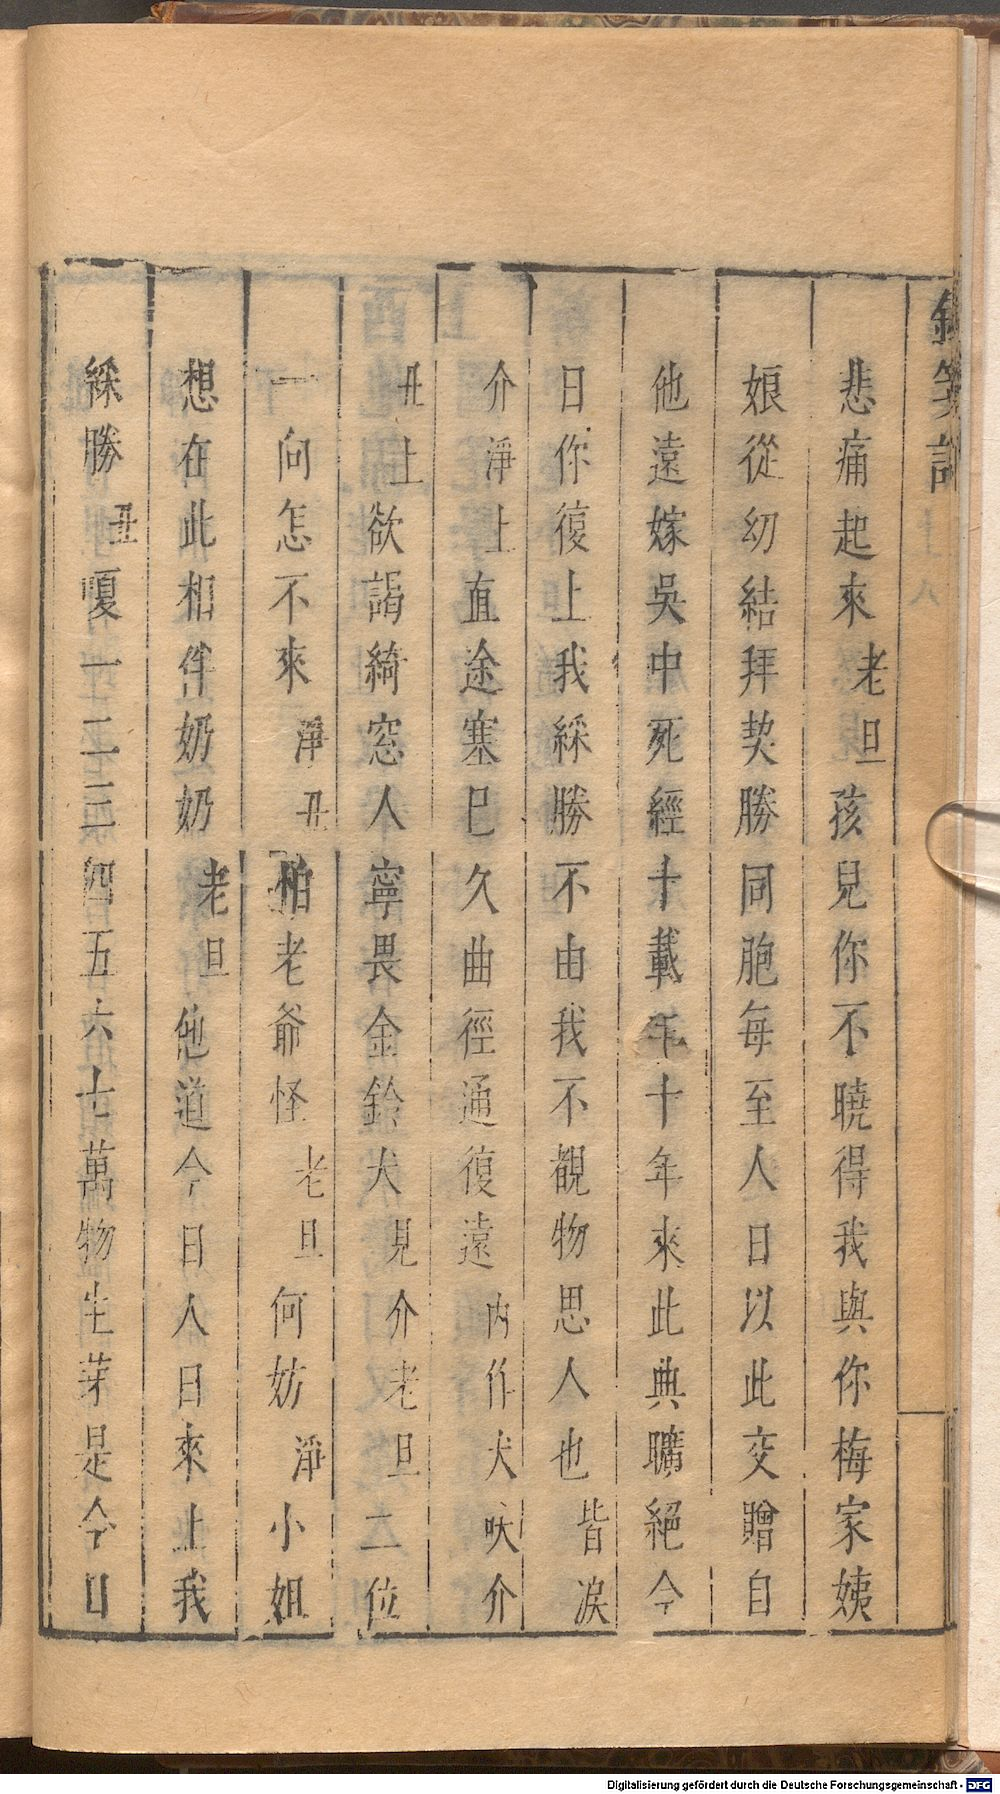 悲痛起來老旦孩兒你不曉得我與你梅家姨
娘從幼結拜契勝同胞每至人日以此交贈自
他遠嫁吳中死經十載年十年來此典曠絕今
日你復上我綵勝不由我不覩物思人也皆淚
介淨上直途塞已久曲徑通復遠內作犬吠介
丑上欲謁綺窓人寧畏金鈴犬見介老旦二位
一向怎不來淨丑怕老爺怪老旦何妨淨小姐
想在此相伴奶奶老旦他道今日人日來上我
綵勝丑嗄一二三四五六七萬物生芽是今日
Digitalisierung gefördert durch die Deutsche Forschungsgemeinschaft - DFG